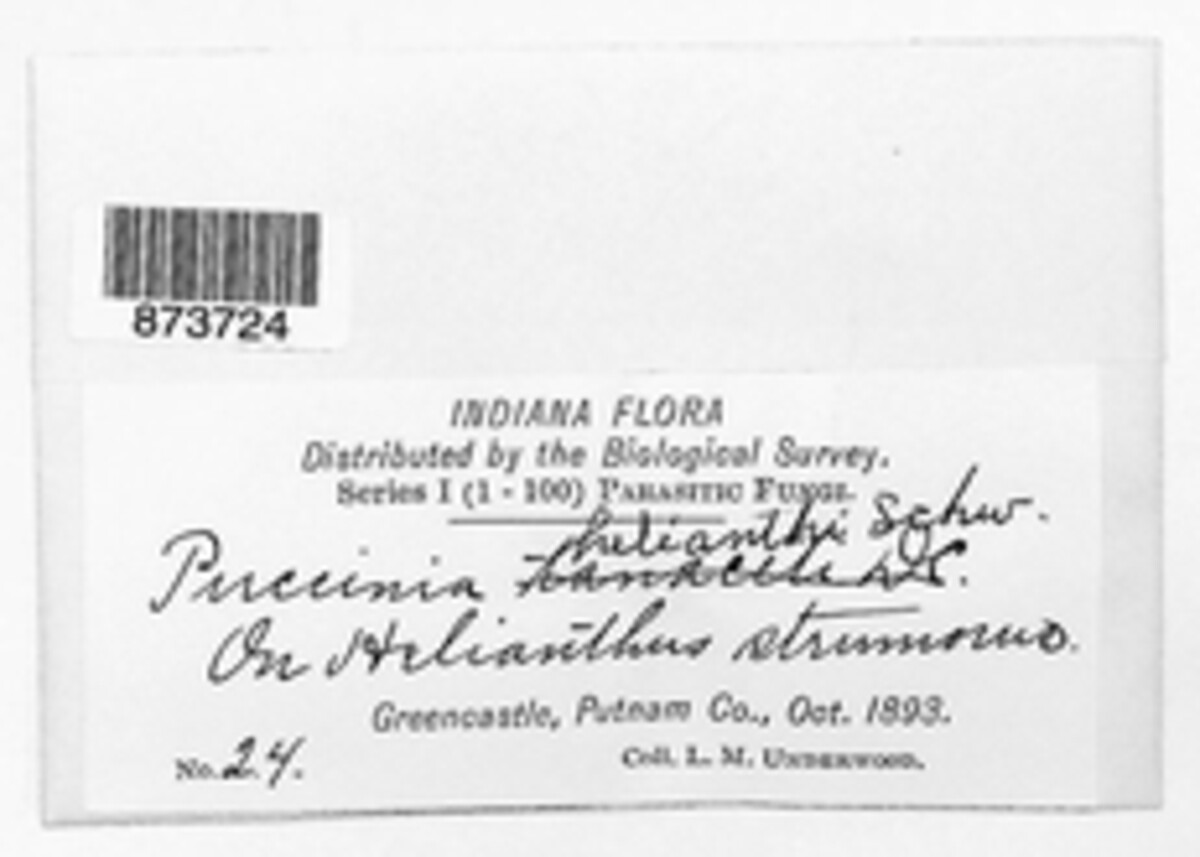 873724
INDIANA FLORA
Distributed by the Biological Survey.
Series I (1 - 100) PARASITIC FUNGI.
helianthi Schw.
Puccinia tanaceti DC.
On Helianthus strumosus.
Greencastle, Putnam Co., Oct. 1893.
No. 24.
Coll. L. M. UNDERWOOD.